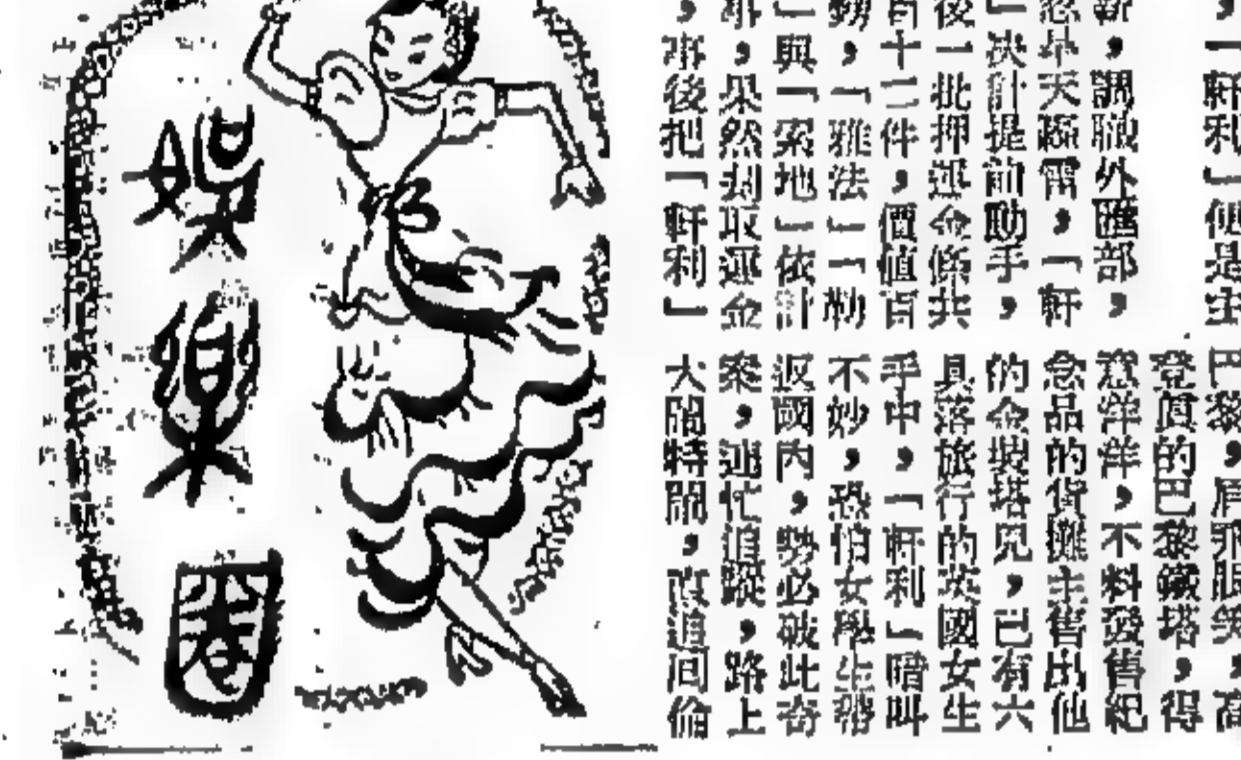 ，「軒利」便是主
，調職外匯部，
天響雷，「軒
」決計提前動手，
後一批押運金條共
百十二件，價值百
，「雅法」「勒
」與「索地」依計
事，果然刦取運金
，事後把「軒利」
巴黎，眉飛眼笑，高
登價的巴黎鐵塔，得
意洋洋，不料發售紀
念品的貨攤主售出他
的金裝塔兒，已有六
具落旅行的英國女生
手中，「軒利」暗叫
不妙，恐怕女學生帶
返國內，勢必破此奇
案，連忙追蹤，路上
大鬧特鬧，直追回倫
娛樂圈